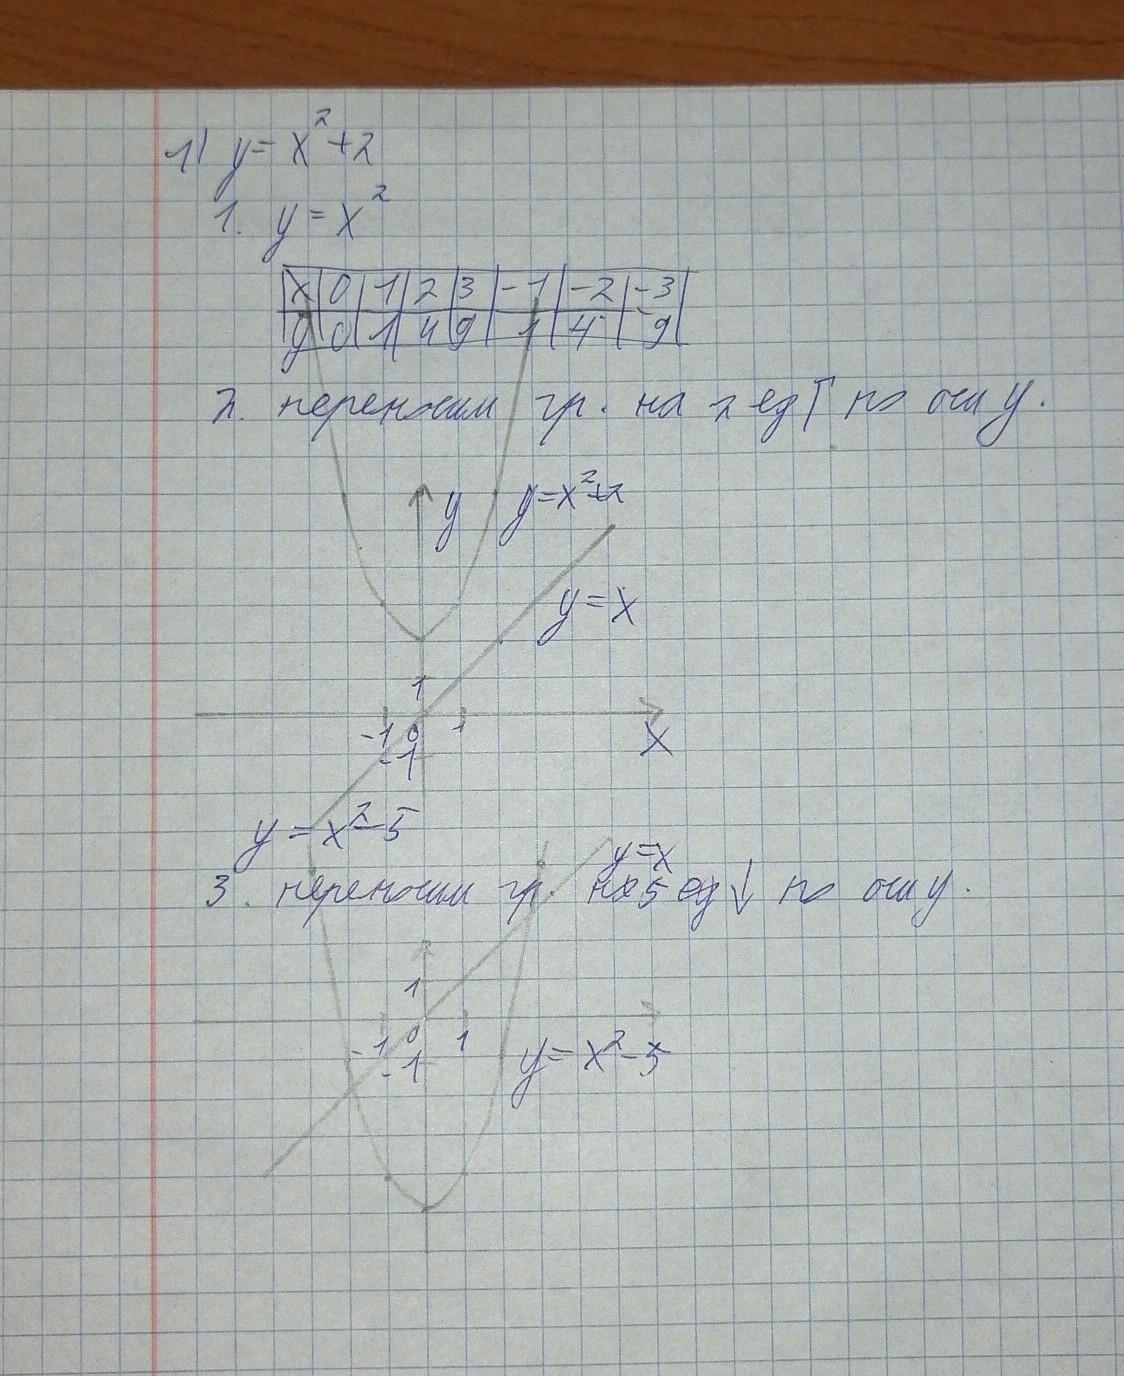 1) y = x² + 2
1. y = x²
x 0 1 2 3 -1 -2 -3
y 0 1 4 9 1 4 9
2. переносим гр. на 2 ед ↑ по оси y.
y y=x²+2
y=x
1
-1 0 1
-1
x
y = x² - 5
y=x
3. переносим гр. на 5 ед ↓ по оси y.
1
-1 0 1
-1
y = x² - 5